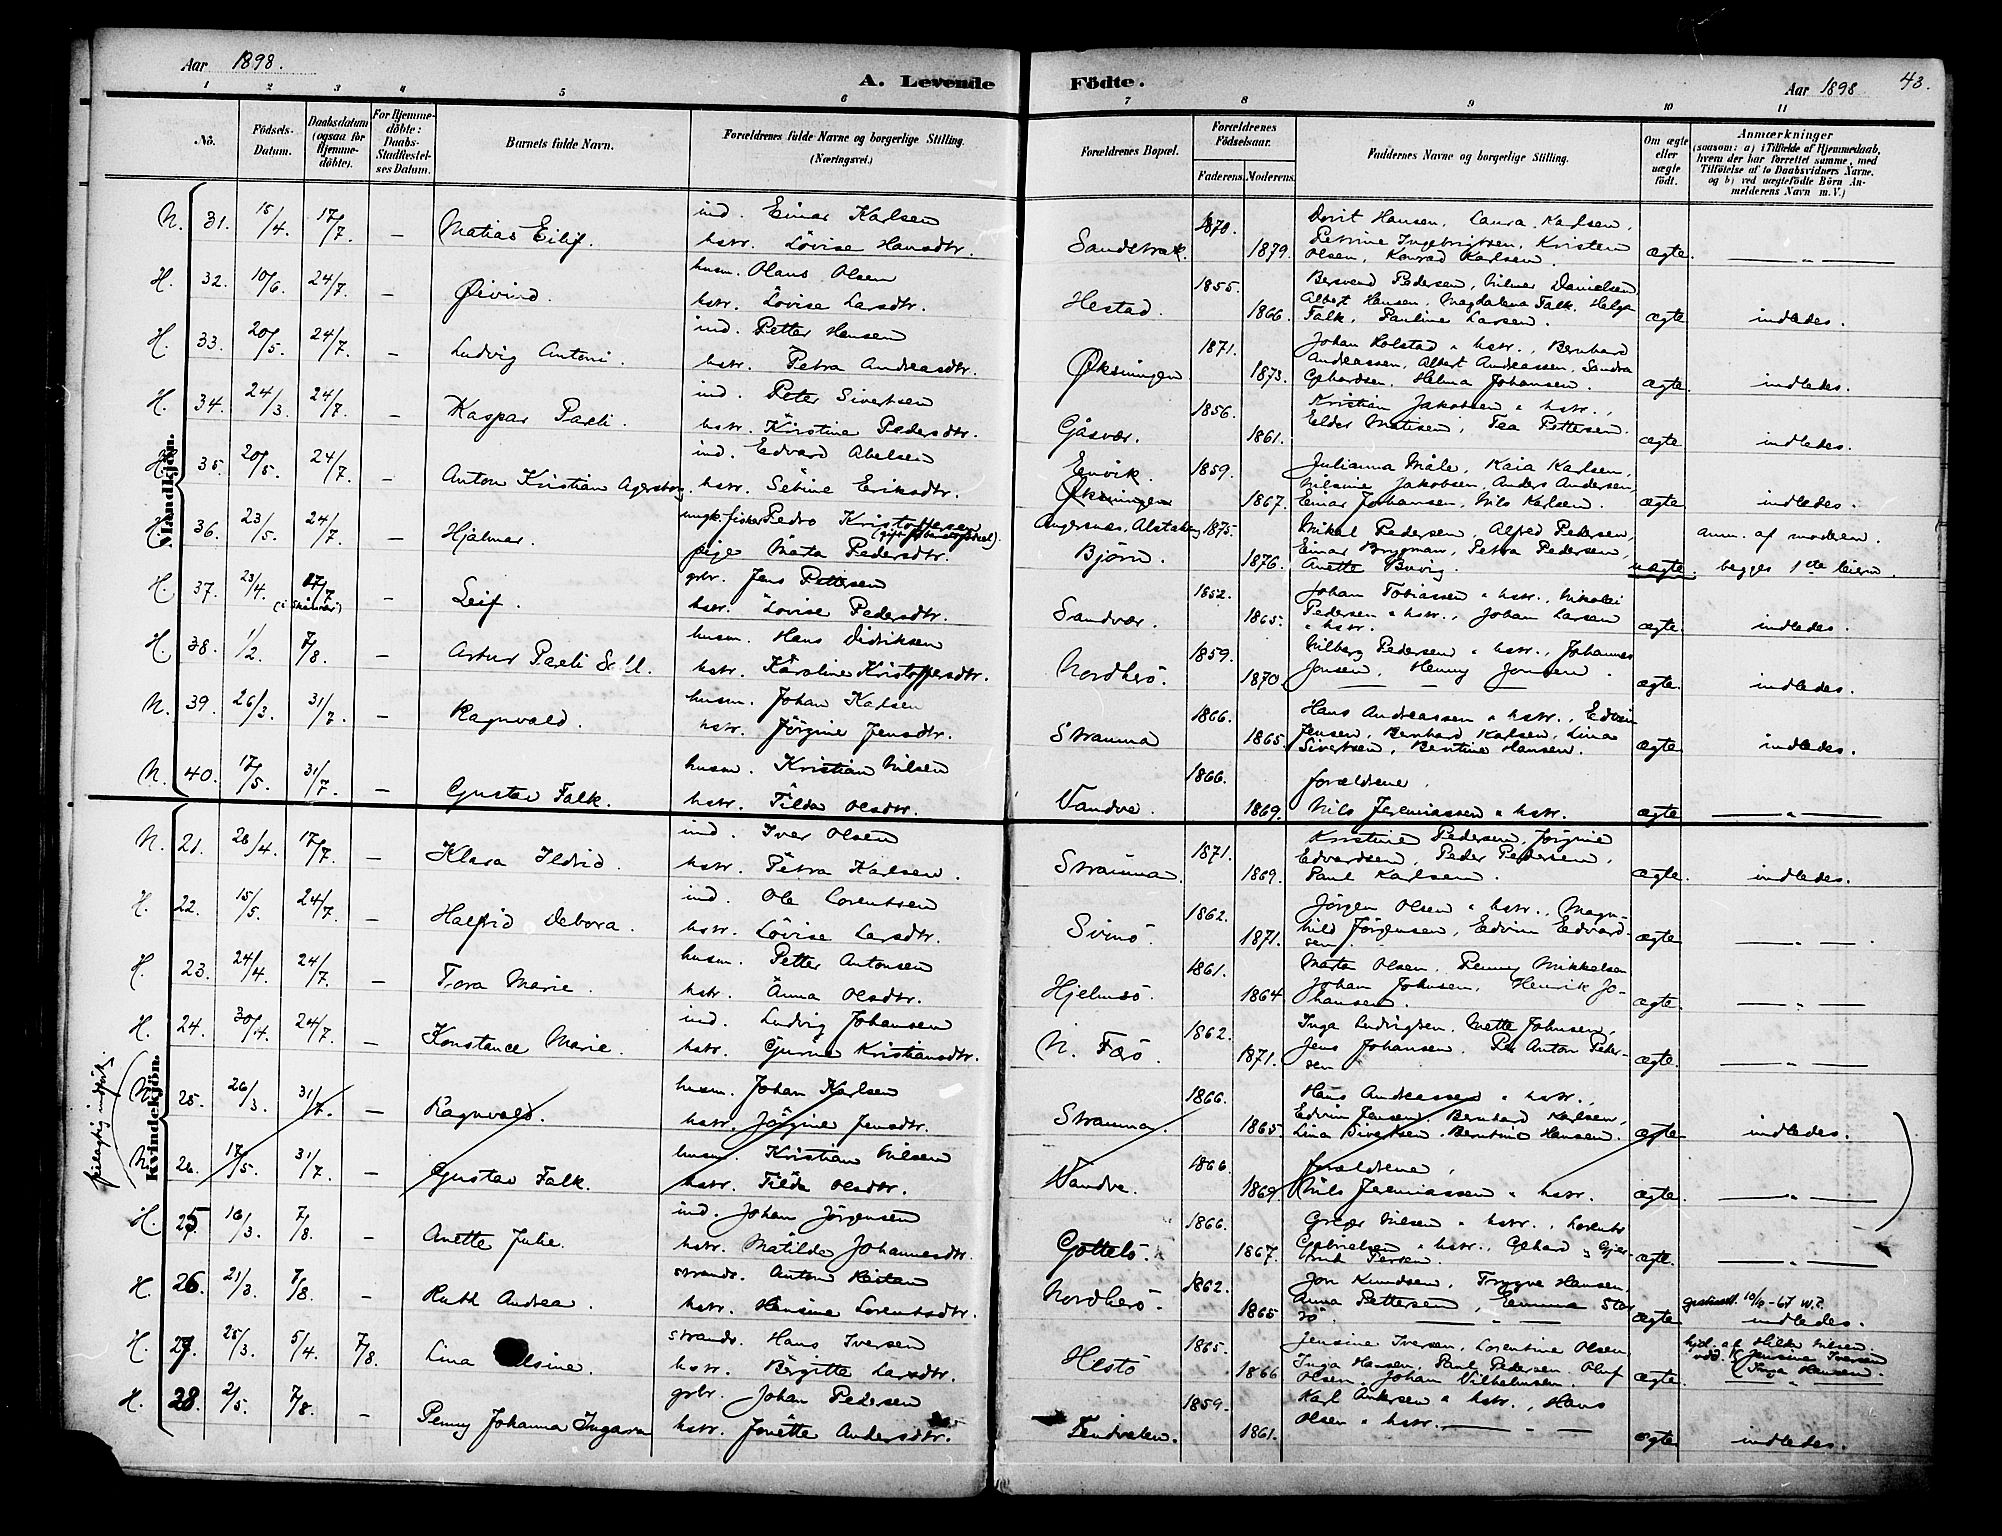 Aar 1898.
A. Levende Födte.
Aar 1898
43.
1 2 3 4 5 6 7 8 9 10 11
No.
Födsels-Datum.
Daabsdatum (ogsaa for Hjemme-döbte).
For Hjemme-döbte: Daabs-Stadfæstel-ses Datum.
Barnets fulde Navn.
Forældrenes fulde Navne og borgerlige Stilling. (Næringsvei.)
Forældrenes Bopæl.
Forældrenes Födselsaar.
Faderens. Moderens.
Faddernes Navne og borgerlige Stilling.
Om ægte eller uægte födt.
Anmærkninger
(saasom: a) i Tilfælde af Hjemmedaab, hvem der har forrettet samme, med Tilföielse af to Daabsvidners Navne, og b) ved uægtefödte Börn Anmelderens Navn m. V.)
Mandkjön.
N. 31. 15/4. 17/7. — Matias Eilif. ind. Einar Karlsen
hstr. Lövise Hansdtr. Sandstrak. 1870. 1879. Dorit Hansen, Laura Karlsen,
Petrine Ingebrigtsen, Kristen
Olsen, Konrad Karlsen. ægte. — „ —
H. 32. 10/6. 24/7. — Øivind. husm. Olaus Olsen
hstr. Lövise Larsdtr. Hestad. 1855. 1866. Bersvend Pedersen, Hilmer Danielsen
Albert Hansen, Magdalena Falk, Helga
Falk, Pauline Larsen. ægte indledes.
H. 33. 20/5. 24/7. — Ludvig Antoni. ind. Petter Hansen
hstr. Petra Andreasdtr. Øksningen 1871. 1873. Johan Kolstad & hstr., Bernhard
Andreassen, Albert Andreassen, Sandra
Gehardsen, Helma Johansen. ægte indledes.
H. 34. 24/3. 24/7. — Kaspar Pareli. ind. Peter Sivertsen
hstr. Kristine Pedersdtr. Gåsvær. 1856. 1861. Kristian Jakobsen & hstr.,
Elder Matisen, Tea Pettersen. ægte indledes.
H. 35. 20/5. 24/7. — Anton Kristian Agersborg. ind. Edvard Abelsen
hstr. Sebine Eriksdtr. Envik. Øksningen 1859. 1867. Julianna Måle, Kaia Karlsen,
Nilsine Jakobsen, Anders Andersen,
Einar Johansen, Nils Karlsen. ægte indledes.
H. 36. 23/5. 24/7. — Hjalmar. ungk. fisker Pedro Kristoffersen
pige Marta Pedersdtr. Angersnes, Alstahaug Bjørn. 1875. 1876. Mikal Pedersen, Alfred Pedersen,
Einar Brygman, Petra Pedersen,
Anette Buvig. uægte. anm. af moderen.
begges 1ste leierm.
H. 37. 23/4. 17/7 (i Skålvær) — Leif. grbr. Jens Pettersen
hstr. Lovise Pedersdtr. Sandvær. 1852. 1865. Johan Tobiassen & hstr., Nikolai
Pedersen & hstr., Johan Larsen
& hstr. ægte. indledes.
H. 38. 1/2. 7/8. — Artur Pareli husm. Hans Didriksen
hstr. Karoline Kristoffersdtr. Nordherö. 1859. 1870 Vilberg Pedersen & hstr., Johannes
Jonsen, Henny Jonsen. ægte. indledes.
N. 39. 26/3. 31/7. — Ragnvald. husm. Johan Karlsen
hstr. Jörgine Jensdtr. Straumen 1866. 1865. Hans Andreassen & hstr., Edvin
Jensen, Bernhard Karlsen, Lina
Sivertsen, Berntine Hansen. ægte indledes.
N. 40. 17/5. 31/7. — Gustav Falk. husm. Kristian Nilsen
hstr. Tilda Olsdtr. Vandve. 1866. 1869. forældrene,
Nils Jeremiassen & hstr. ægte — „ —
Kvindekjön.
N. 21. 28/4. 17/7. — Klara Ildrid. ind. Iver Olsen
hstr. Petra Karlsen. Strauma. 1871. 1869. Kristine Pedersen, Jørgine
Edvardsen, Peder Pedersen,
Paul Karlsen. ægte. indledes.
H. 22. 15/5. 24/7. — Halfrid Debora. ind. Ole Lorentsen
hstr. Lövise Larsdtr. Svinö. 1862. 1871. Jörgen Olsen & hstr., Magn-
hild Jörgensen, Edvin Edvard-
sen. ægte — „ —
H. 23. 24/4. 24/7. — Tora Marie. husm. Petter Antonsen
hstr. Anna Olsdtr. Hjelmsö. 1861. 1864. Marta Olsen, Penny Mikkelsen
Johan Johnsen, Henrik Jo-
hansen. ægte — „ —
H. 24. 30/4. 24/7. — Konstance Marie. ind. Ludvig Johansen
hstr. Gurine Kristiansdtr. N. Færö. 1862. 1871. Inga Ludvigsen, Mette Johnsen,
Jens Johansen, Per Anton Peder-
sen ægte — „ —
feilagtig indført.
N. 25. 26/3. 31/7. — Ragnvald. husm. Johan Karlsen
hstr. Jörgine Jensdtr. Strauma. 1866. 1865. Hans Andreassen & hstr.,
Edvin Jensen, Bernhard Karlsen,
Lina Sivertsen, Berntine Hansen. ægte indledes.
N. 26. 17/5. 31/7. — Gustav Falk. husm. Kristian Nilsen
hstr. Tilda Olsdtr. Vandve. 1866. 1869. forældrene,
Nils Jeremiassen & hstr. ægte. — „ —
H. 25. 16/3. 7/8. — Anette Julie. ind. Johan Jörgensen
hstr. Matilde Johannesdtr. Göttelö. 1866. 1867. Greger Nilsen & hstr., Lorents
Gabrielsen & hstr., Gehard & Gjer-
trud Persen. ægte. — „ —
H. 26 21/3. 7/8. — Ruth Andrea. strands. Anton Reitan
hstr. Hansine Lorentsdtr. Nordherö. 1862. 1865 Jon Knudsen, Trygve Hansen,
Anna Pettersen, Emma Stor
rö. ægte indledes.
H. 27. 25/3. 5/4. 7/8. Lina Elsine. strands. Hans Iversen
hstr. Birgitte Larsdtr. Hestö 1865. 1866 Jensine Iversen, Lorentine Olsen
Inga Hansen, Paul Pedersen, Oluf
Olsen, Johan Vilhelmsen. ægte. hjd. af Hilda Nilsen
vdd. Jensine Iversen
Inga Hansen.
H. 28. 2/5. 7/8. — Penny Johanna Ingara grbr. Johan Pedersen
hstr. Jonette Andersdtr. Tendvalen. 1859. 1861. Karl Andersen & hstr., Hans
Olsen & hstr. — „ — ægte indledes.